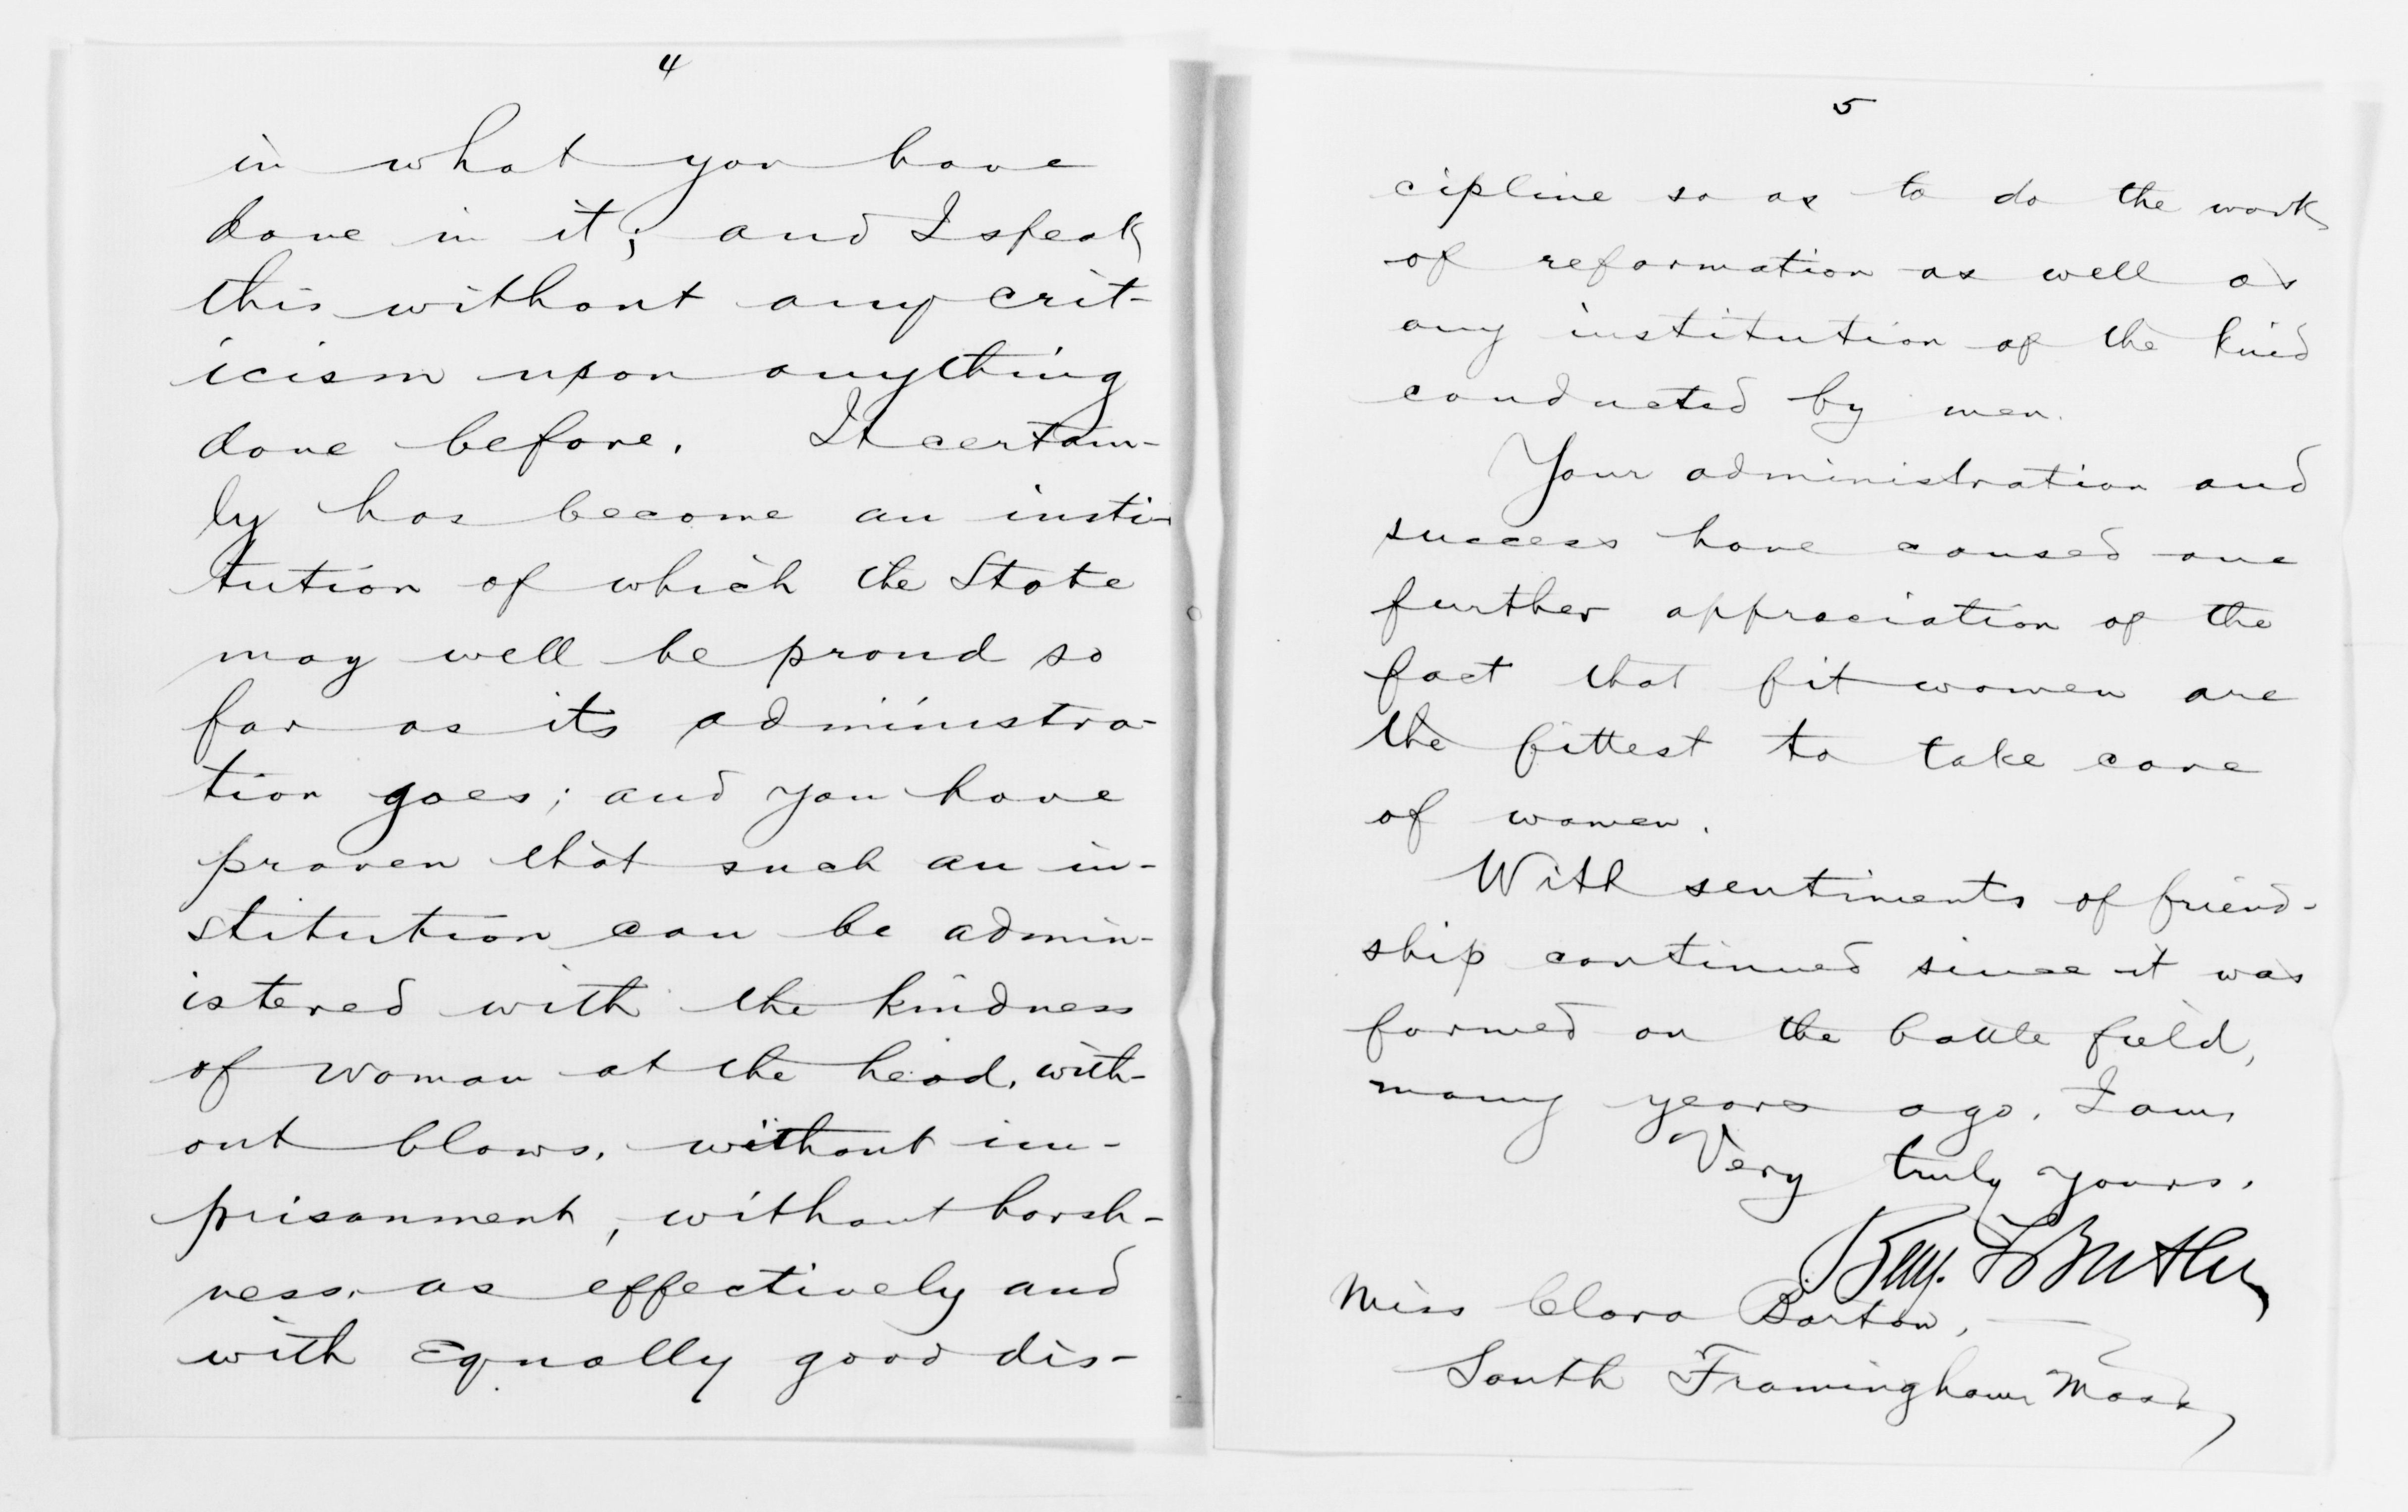 4
in what you have
done in it; and I speak
this without any crit-
icism upon anything
done before. It certain-
ly has become an insti-
tution of which the State
may well be proud so
far as its administra-
tion goes; and you have
proven that such an in-
stitution can be admin-
istered with the kindness
of woman at the head, with-
out blows, without im-
prisonment, without harsh-
ness, as effectively and
with Equally good dis-
5
cipline so as to do the work
of reformation as well as
any institution of the kind
conducted by men.
Your administration and
success have caused one
further appreciation of the
fact that fit women are
the fittest to take care
of women.
With sentiments of friend-
ship continued since it was
formed on the battle field,
many years ago, I am,
Very truly yours,
Benj. F Butler
Miss Clara Barton,
South Framingham Mass,